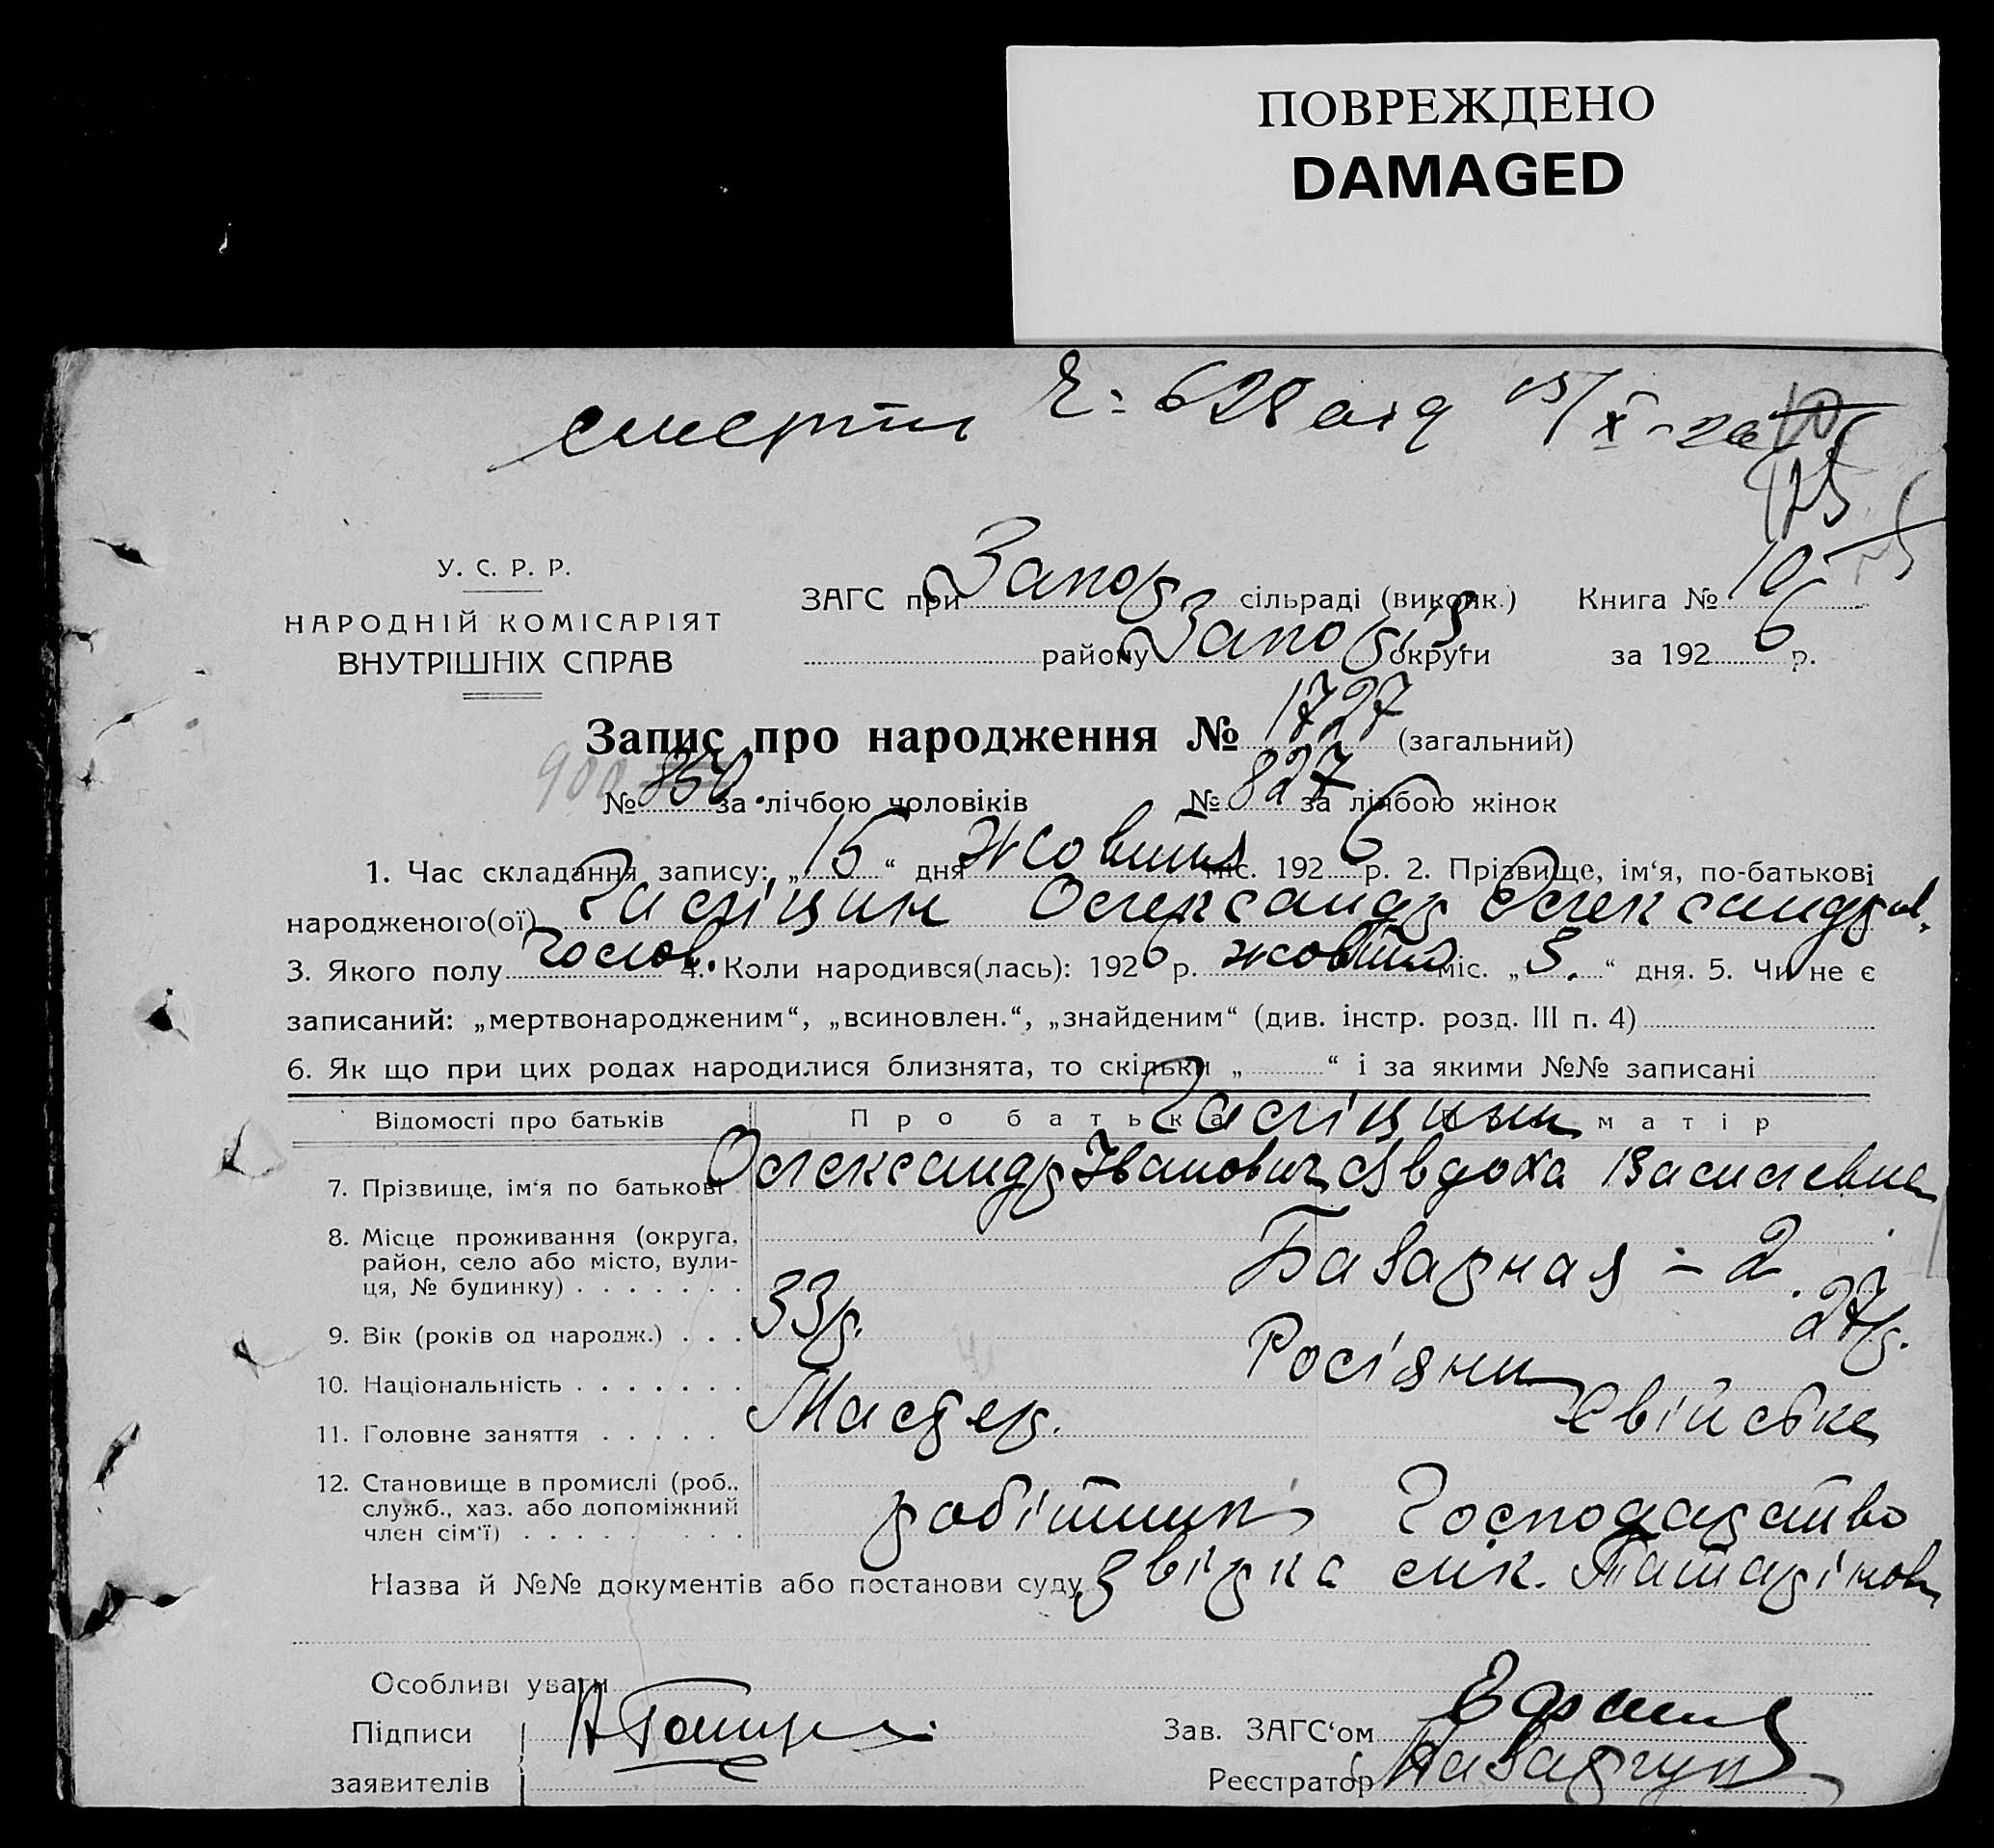 ПОВРЕЖДЕНО
DAMAGED
смерти 628 від 15/X-26
175
У. С. Р. Р.
НАРОДНІЙ КОМІСАРІЯТ
ВНУТРІШНІХ СПРАВ
ЗАГС при Запор сільраді (виконк.) Книга № 10
району Запор округи за 1926 р.
Запис про народження № 1727 (загальний)
900 № 850 за лічбою чоловіків № 827 за лічбою жінок
1. Час складання запису: „15“ дня Жовтня міс. 1926 р. 2. Прізвище, ім‘я, по-батькові
народженого(ої) Галіцин Олександр Олександров.
3. Якого полу Чолов. 4. Коли народився(лась): 1926 р. жовтня міс. „3.“ дня. 5. Чи не є
записаний: „мертвонародженим“, „всиновлен.“, „знайденим“ (див. інстр. розд. III п. 4)
6. Як що при цих родах народилися близнята, то скільки „ “ і за якими №№ записані
Відомості про батьків Про батька матір
Галіцини
7. Прізвище, ім‘я по батькові Олександр Іванович Явдоха Василевна
8. Місце проживання (округа, район, село або місто, вулиця, № будинку) Базарная - 2.
9. Вік (років од народж.) 33р. 27р.
10. Національність Росіяни
11. Головне заняття Хвійське
12. Становище в промислі (роб., служб., хаз. або допоміжний член сім‘ї) робітник Господарство
Назва й №№ документів або постанови суду
Особливі уваги
Підписи
заявителів
Зав. ЗАГС‘ом
Реєстратор